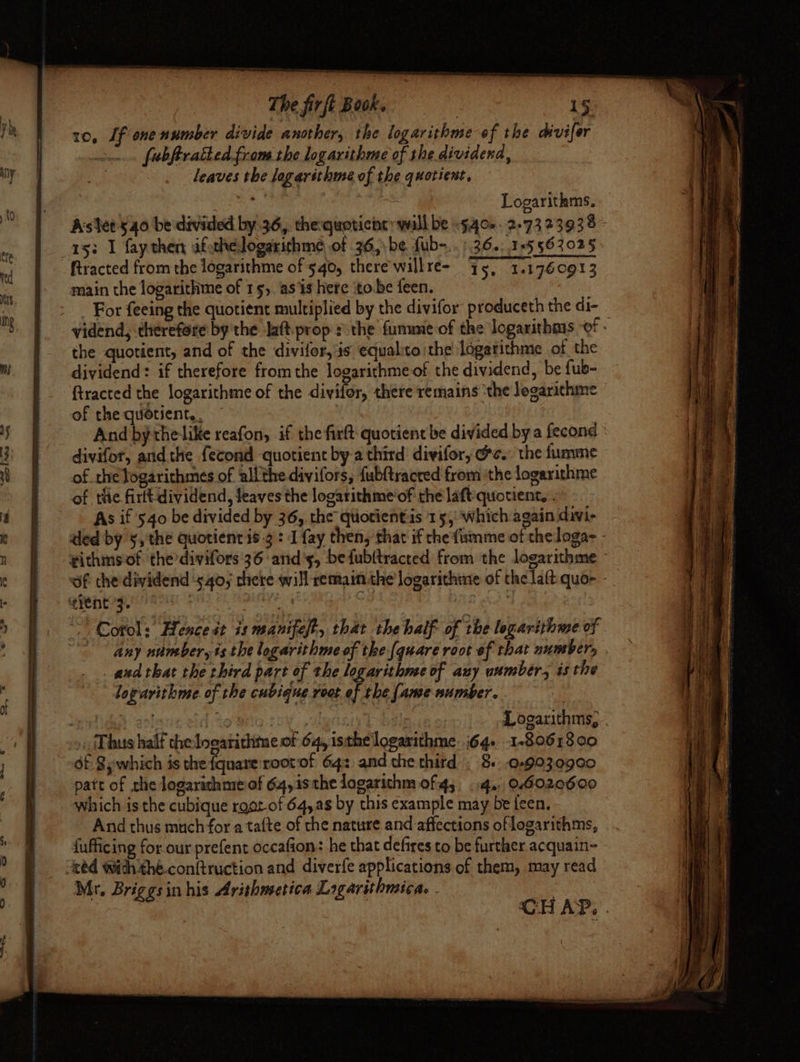 The firſt Book. 15
10. If one number divide another, the logarithme of the diviſor
ſubſtracted from the logarithme of the dividend,
leaves the logarithme of the quotient.
Logarithms.
As let 540 be divided by 36, the quotient will be 540. 2.7323938
15: I ſay then if the logarithme of 36, be ſub- 36. 1.5563025
ſtracted from the logarithme of 540, there will re- 15. 1.1760913
main the logarithme of 15, as is here to be ſeen.
For ſeeing the quotient multiplied by the diviſor produceth the di-
vidend, therefore by the laſt prop: the ſumme of the logarithms of
the quotient, and of the diviſor, is equal to the logarithme of the
dividend: if therefore from the logarithme of the dividend, be ſub-
ſtracted the logarithme of the diviſor, there remains the logarithme
of the quotient.
And by the like reaſon, if the firſt quotient be divided by a ſecond
diviſor, and the ſecond quotient by a third diviſor, &c. the ſumme
of the logarithmes of all the diviſors, ſubſtracted from the logarithme
of the firſt dividend, leaves the logarithme of the laſt quotient.
As if 540 be divided by 36, the quotient is 15, which again divi-
ded by 5, the quotient is 3: I ſay then, that if the ſumme of the loga-
rithms of the diviſors 36 and 5, be ſubſtracted from the logarithme
of the dividend 540, there will remain the logarithme of the laſt quo-
tient 3.
Corol: Hence it is manifeſt, that the half of the logarithme of
any number, is the logarithme of the ſquare root of that number,
and that the third part of the logarithme of any number, is the
logarithme of the cubique root of the ſame number.
Logarithms,
Thus half the logarithme of 64, is the logarithme 64. 1.8061800
of 8, which is the ſquare root of 64: and the third 8. 0.9030900
part of the logarithme of 64, is the logarithm of 4, 4. 0.6020600
which is the cubique root of 64, as by this example may be ſeen.
And thus much for a taſte of the nature and affections of logarithms,
ſufficing for our preſent occaſion: he that deſires to be further acquain-
ted with the conſtruction and diverſe applications of them, may read
Mr. Briggs in his Arithmetica Logarithmica.
CHAP.